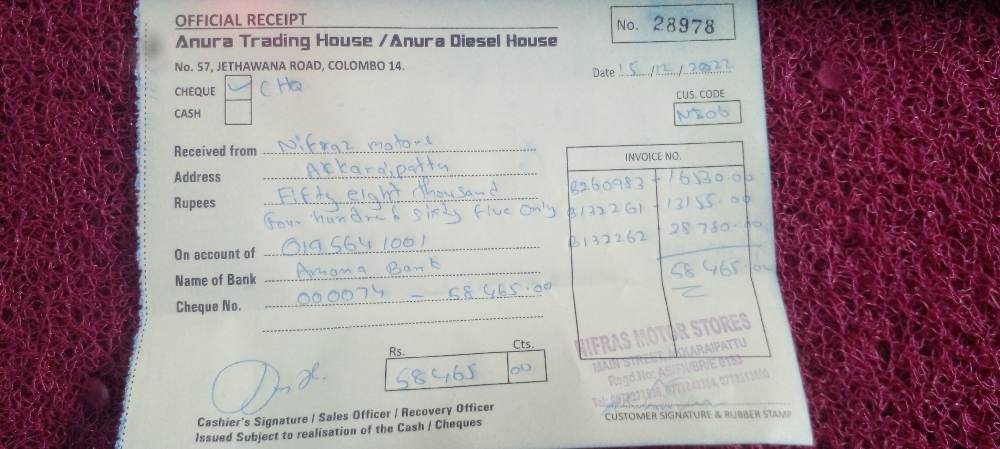 OFFICIAL RECEIPT
No. 28978
Anura Trading House / Anura Diesel House
No. 57, JETHAWANA ROAD, COLOMBO 14.
Date 15/12/2022
CHEQUE CHQ
CASH
CUS. CODE
Received from Nifraz motors
INVOICE NO.
Address Akkaraipattu
Rupees Fifty eight thousand
B260983 - 16530.00
Four hundred sixty five only
B132261 - 13155.00
B132262 28780.00
On account of 0195641001
Name of Bank Amana Bank
58465.00
Cheque No. 000074 - 58465.00
NIFRAS MOTOR STORES
MAIN STREET, AKKARAIPATTU
Rs. Cts.
58465 00
Cashier's Signature / Sales Officer / Recovery Officer
CUSTOMER SIGNATURE & RUBBER STAMP
Issued Subject to realisation of the Cash / Cheques